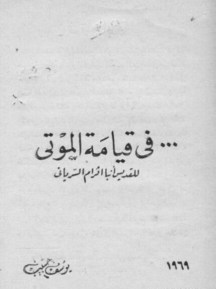 ... فى قيامة الموتى
للقديس أنبا افرام السريانى
١٩٦٩
يوسف حبيب